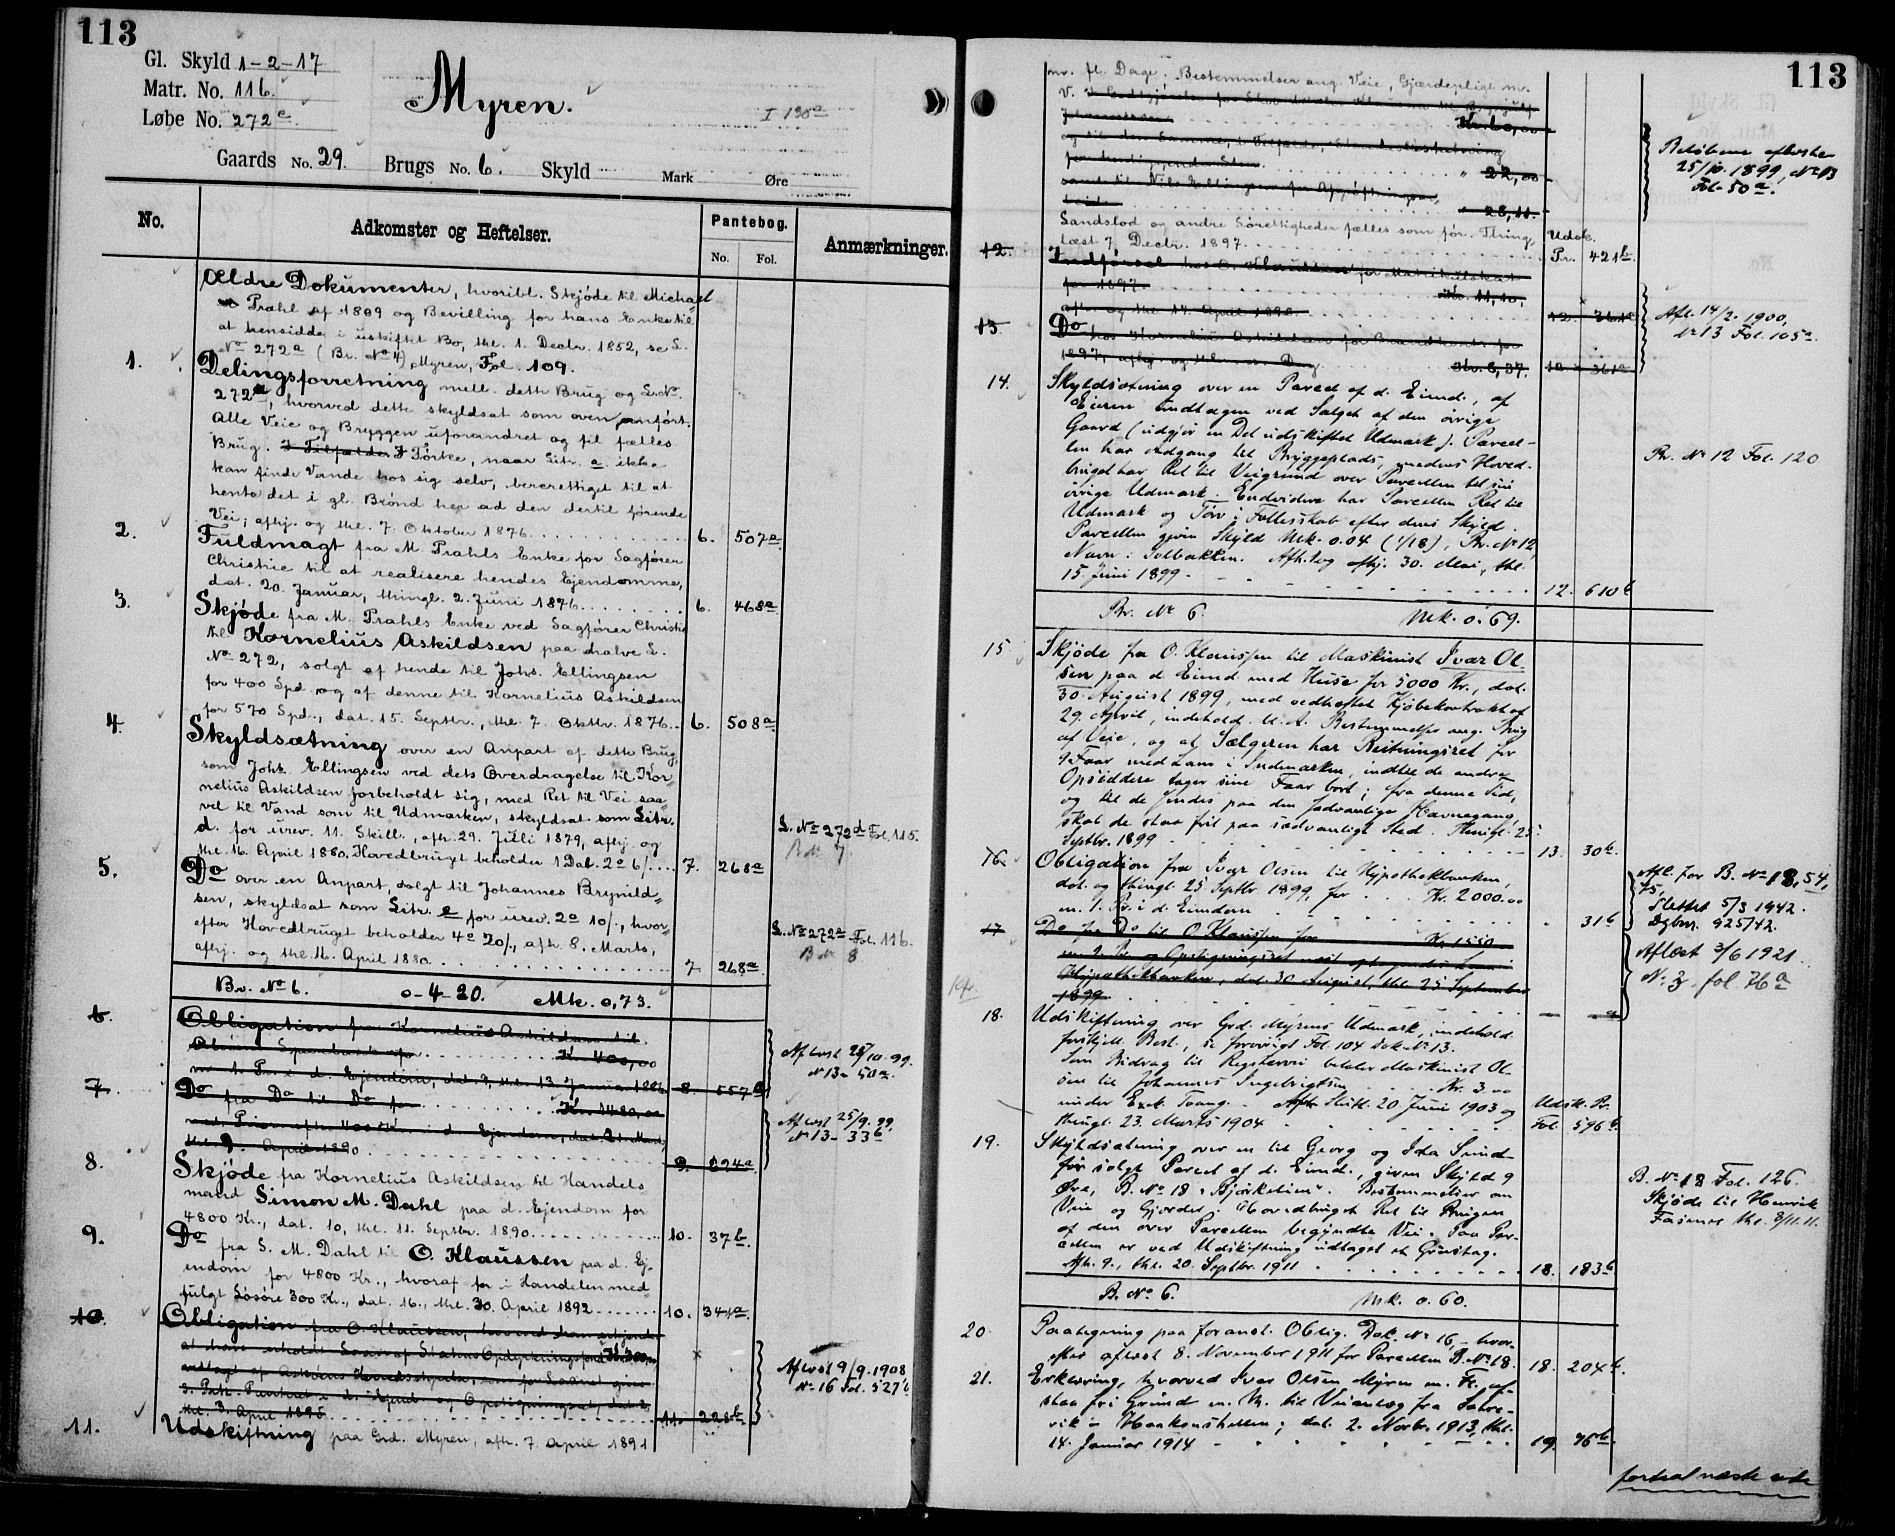 113
Gl. Skyld 1-2-17
Matr. No. 116.
Løbe No. 272c
Myren.
I 190a
Gaards No. 29. Brugs No. 6. Skyld Mark Øre
No. Adkomster og Heftelser. Pantebog. Anmærkninger.
No. Fol.
Ældre Dokumenter, hvoribl. Skjøde til Michael
Prahl af 1809 og Bevilling for hans Enke til
at hensidde i uskiftet Bo, thl. 1. Decbr. 1852, se L.
No 272a (Br. No 4) Myren, Fol. 109.
1. Delingsforretning mell. dette Brug og L.No.
272a, hvorved dette skyldsat som oven anført.
Alle Veie og Bryggen uforandret og til fælles
Brug. I Tilfælde I Tørke, naar Litr. a. ikke
kan finde Vande hos sig selv, berettiget til at
hente det i gl. Brønd hos ad den dertil førende
Vei; afhj. og thl. 7. Oktober 1876. 6. 507a
2. Fuldmagt fra M. Prahls Enke for Sagfører
Christie til at realisere hendes Ejendomme,
dat. 20. Januar, thingl. 2. Juni 1876. 6. 468a
3. Skjøde fra M. Prahls Enke ved Sagfører Christie
til Kornelius Askildsen paa halve L.
No 272, solgt af hende til Johs. Ellingsen
for 400 Spd. og af denne til Kornelius Askildsen
for 570 Spd., dat. 15. Septbr., thl. 7. Oktbr. 1876. 6. 508a
4. Skyldsætning over en Anpart af dette Brug,
som Johs. Ellingsen ved dets Overdragelse til Kor-
nelius Askildsen forbeholdt sig, med Ret til Vei saa-
vel til Vand som til Udmarken, skyldsat som Litr.
d. for urev. 11. Skill., afh. 29. Juli 1879, afhj. og
thl. 16. April 1880. Hovedbruget beholder 1 Dal. 2o 6/. 7. 268a
L. No 272d Fol. 115.
B. No 7
5. Do over en Anpart, solgt til Johannes Brynild-
sen, skyldsat som Litr. e for urev. 2o 10/., hvor-
efter Hovedbruget beholder 4o 20/., afh. 8. Marts,
afhj. og thl. 16. April 1880. 7. 268a
L. No 272e Fol. 116.
B. No 8
Br. No 6. 0-4-20. Mk. 0,73.
6. Obligation fra Kornelius Askildsen til
Kr. 400,00
m. 1. Pr. i d. Ejendom, dat. 9, thl. 13. Januar 1886 8. 557a
Aflæst 25/10-99.
No 13- 50a.
7. Do fra Do til Do for Kr. 1480,00
med Prior. efter 400 Kr. i d. Ejendom, dat. 21. Marts,
thl. 9. April 1890. 9. 624a
Aflæst 25/9. 99.
No 13- 33b
8. Skjøde fra Kornelius Askildsen til Handels
mand Simon M. Dahl paa d. Ejendom for
4800 Kr., dat. 10, thl. 11. Septbr. 1890. 10. 37b.
9. Do fra S. M. Dahl til O. Klaussen paa d. Ej-
endom for 4800 Kr., hvoraf for i Handelen med
fulgt Løsøre 300 Kr., dat. 16., thl. 30. April 1892 10. 341a.
10. Obligation fra O. Klaussen, hvorved han erkjender
at have erholdt Laan af Statens Opdyrkningsfond Kr. 300,00
3. Prk. Panteret i d. Ejend. og Opsigningsret, dat. 2,
thl. 3. April 1895 11. 228b
Aflæst 9/9. 1908
No 16 Fol. 527b
11. Udskiftning paa Grd. Myren, afh. 7. April 1891
113
m. fl. Dage. Bestemmelser ang. Veie, Gjærdepligt m.
V.
Kr. 60,00
22,00
samt til Nils Ellingsen for Afgrøftningsar-
beide 28,11.
Beløbene aflæste
25/10. 1899, No 13
Fol. 50a.
Sandslod og andre Sørettigheder fælles som før. Thing-
læst 7. Decbr. 1897. Udsk. Pr. 421b.
12. Indførsel hos O. Klaussen for Matrikulskat
for 1897 Kr. 11,10,
afh. og thl. 14. April 1898 12. 361a
13. Do hos Kornelius Askildsen for Brandkont. for
1897, afhj. og thl. s. D. Kr. 3,37. 12 - 361a
Afl. 14/2. 1900,
No 13 Fol. 105a
14. Skyldsætning over en Parcel af d. Eiend., af
Eieren undtagen ved Salget af den øvrige
Gaard (udgjør en Del udskiftet Udmark). Parcel-
len har Adgang til Bryggeplads, medens Hoved-
bruget har Ret til Veigrund over Parcellen til sin
øvrige Udmark. Endvidere har Parcellen Ret til
Udmark og Tørv i Fællesskab efter dens Skyld.
Parcellen given Skyld Mk. 0.04 (1/18), Br. No 12,
Navn: Solbakken. Afh. og afhj. 30. Mai, thl.
15. Juni 1899 12. 610b
Br. No 12 Fol. 120
Br. No 6. Mk. 0.69.
15 Skjøde fra O. Klaussen til Maskinist Ivar Ol-
sen paa d. Eiend med Huse for 5000 Kr., dat.
30. August 1899, med vedheftet Kjøbekontrakt af
29. April, indehold. bl. A. Bestemmelse ang. Brug
af Veie, og at Sælgeren har Beitningsret for
9 Faar med Lam i Indmarken, indtil de andre
Opsiddere tager sine Faar bort; fra denne Tid,
og til de sendes paa den sædvanlige Havnegang,
skal de staa frit paa sædvanligt Sted. Thingl. 25
Septbr. 1899 13. 30b.
16. Obligation fra Ivar Olsen til Hypothekbanken,
dat. og thingl. 25 Septbr 1899, for Kr. 2000.00
m. 1. Pr. i d. Eiendom 31b
Afl. for B. No 18, 54,
75.
Slettet 5/3 1942.
Dgbnr. 925/42.
17 Do fra Do til O. Klaussen for Kr. 1550
m. 2. Pr. og Opsigningsret
Hypothekbanken, dat. 30 August, thl. 25 September
1899
Aflæst 3/6 1921
No 3 fol. 76a
18. Udskiftning over Grd. Myrens Udmark, indehold.
forskjell. Best., se forøvrigt Fol 104 Dok No 13.
Som Bidrag til betaler Maskinist Ol-
sen til Johannes Ingebrigtsen Kr. 3.00
under Exek. Tvang. Slutt. 20. Juni 1903 og
thingl. 23. Marts 1904 Udsk. Pr. Fol 596b.
19. Skyldsætning over en til Georg og Ida Sund-
før solgt Parcel af d. Eiend., given Skyld 9
Øre, B. No 18 "Bjørkelien". Bestemmelser om
Veie og Gjerder. Hovedbruget Ret til Brugen
af den over Parcellen begyndte Vei. Paa Par-
cellen er ved Udskiftning udlaget et Grustag.
Afh. 9., thl. 20. Septbr. 1911 18. 183b
B. No 18 Fol. 126.
Skjøde til Henrik
thl. 8/11.11.
B. No 6. Mk. 0.60.
20. Paategning paa foranst. Oblig. Dok. No 16, hvor-
efter aflæst 8. November 1911 for Parcellen B. No 18. 18. 204b.
21. Erklæring, hvorved Ivar Olsen Myren m. Fl. af-
staa fri Grund m. M. til Veianlæg fra
vik - Haakonshellen; dat. 2. Novbr. 1913, thl.
14. Januar 1914 19. 75b.
fortsat næste side